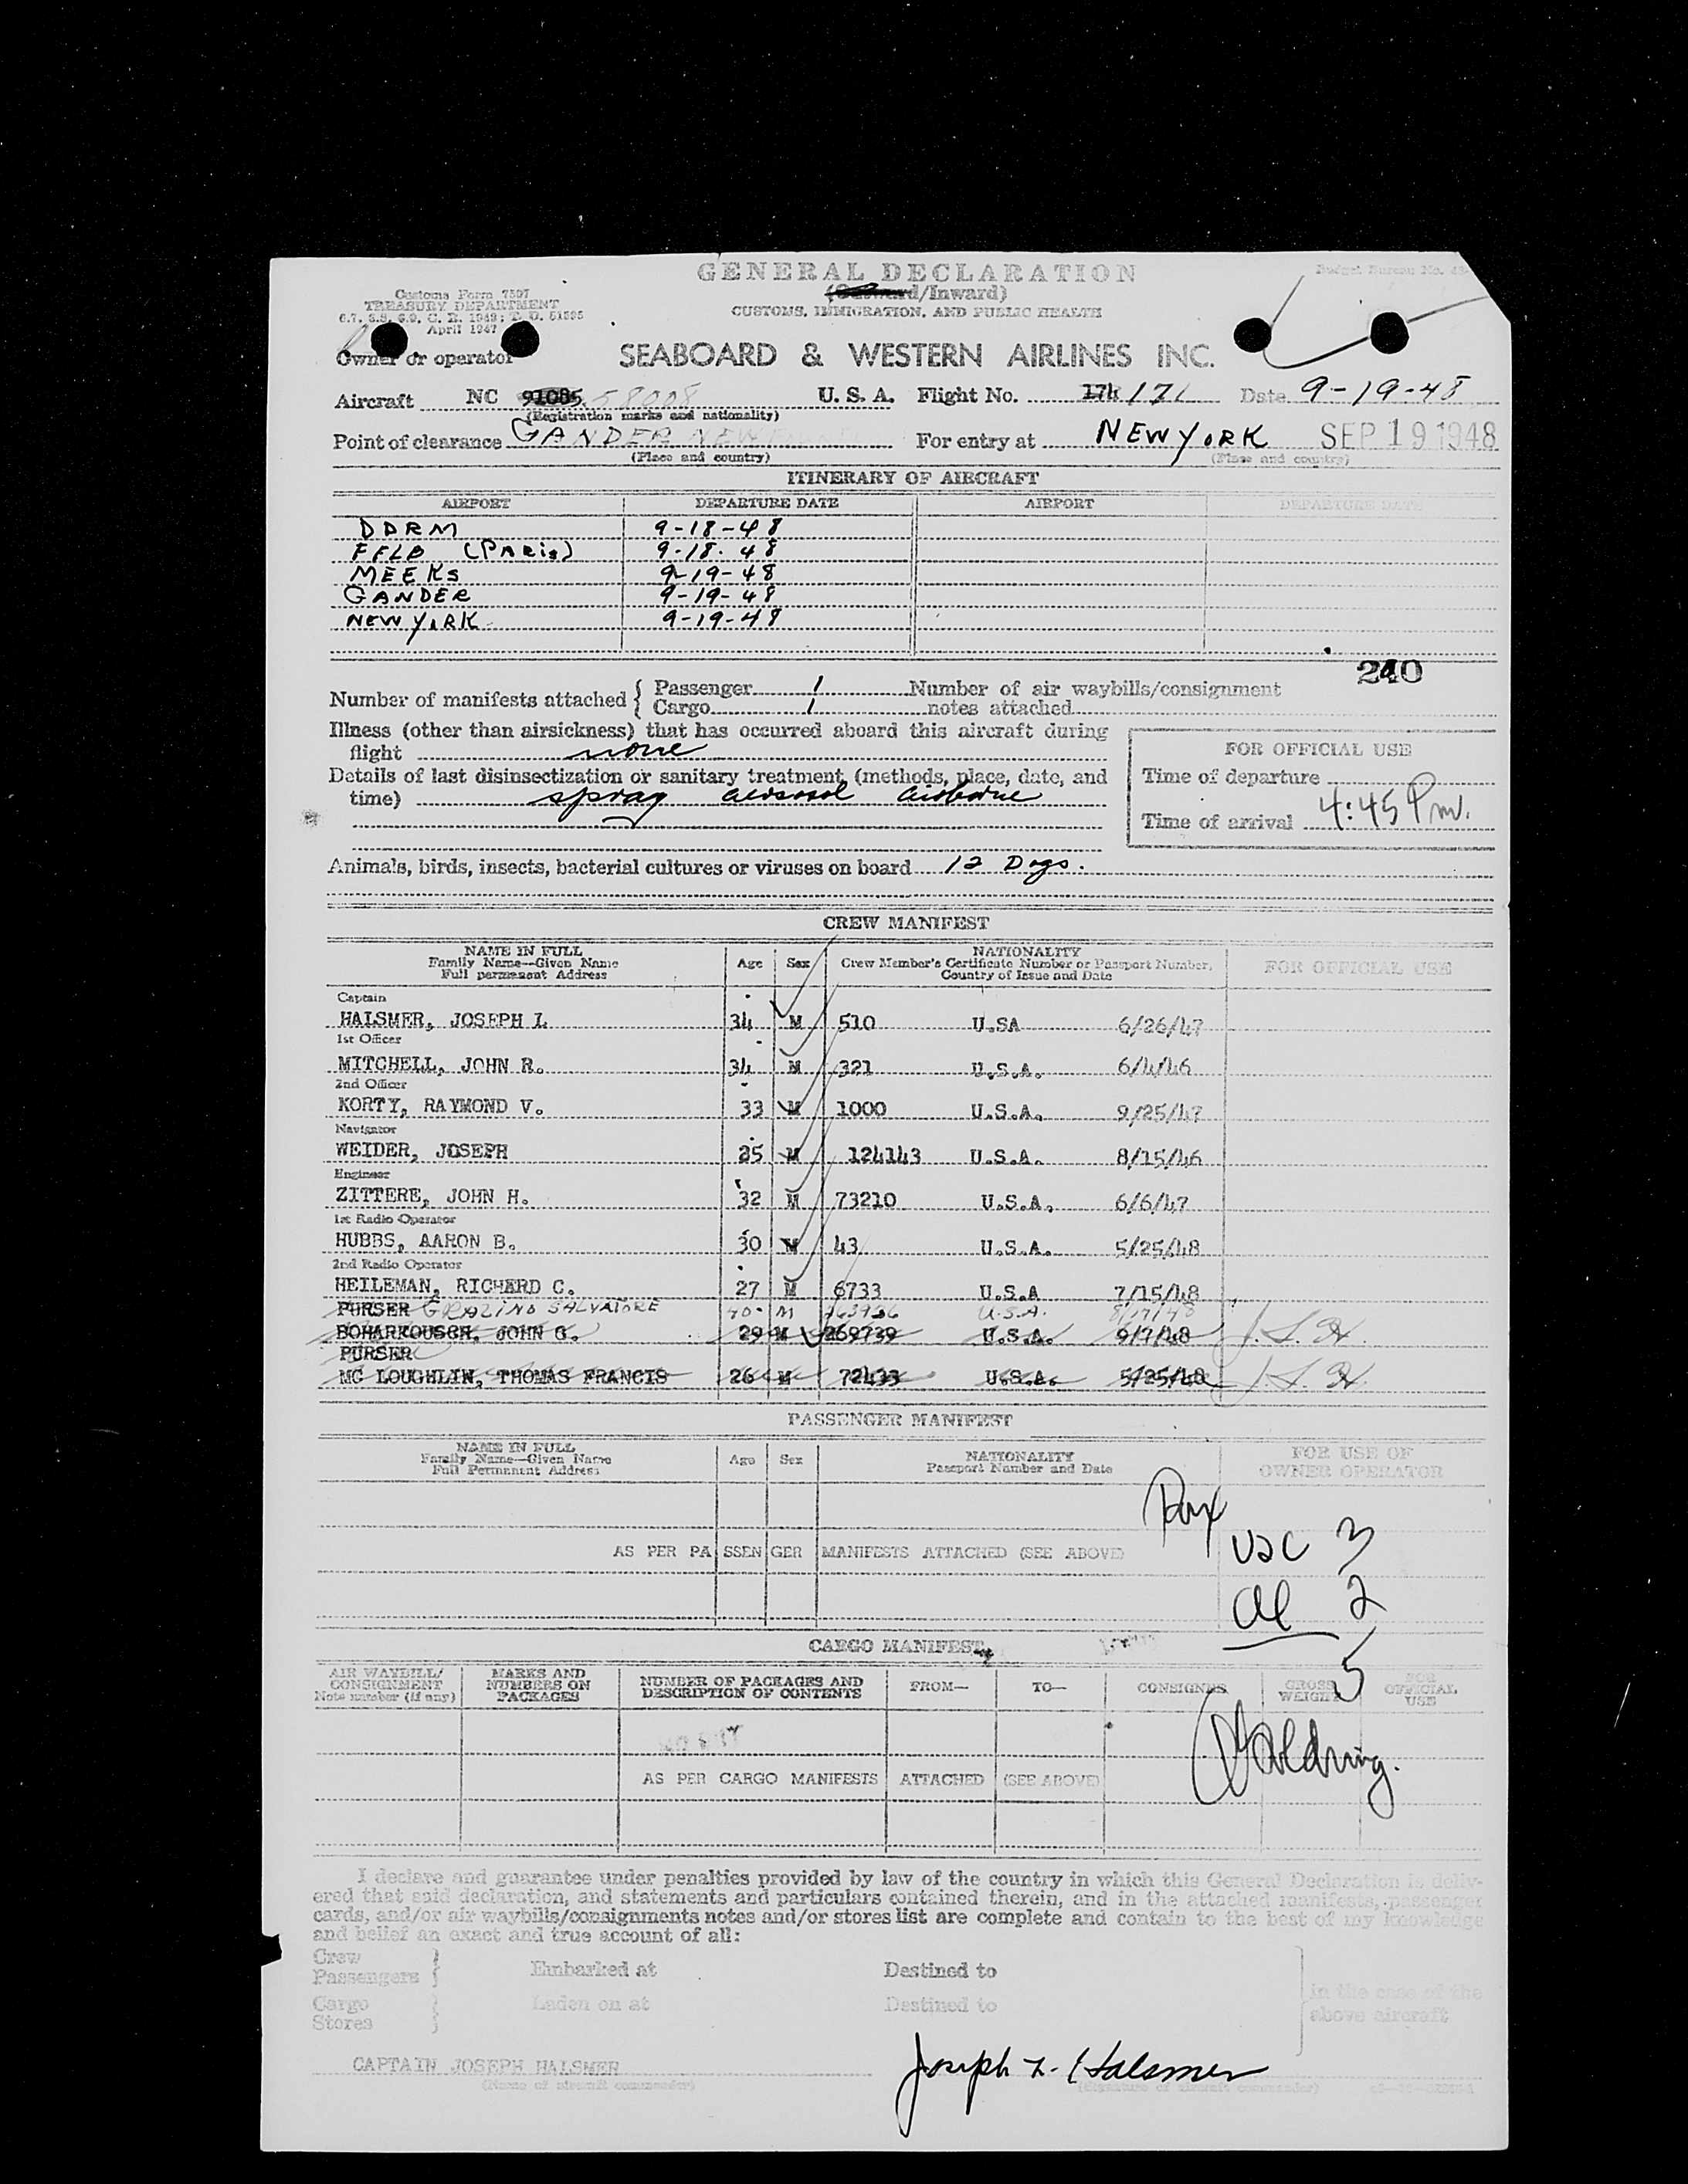 GENERAL DECLARATION
Budget Bureau No.
(Outward/Inward)
Customs Form 7507
TREASURY DEPARTMENT
CUSTOMS, IMMIGRATION, AND PUBLIC HEALTH
April 1947
Owner or operator SEABOARD & WESTERN AIRLINES INC.
Aircraft NC 91085 58008 U. S. A. Flight No. 174 171 Date 9-19-48
(Registration marks and nationality)
Point of clearance GANDER NEW For entry at NEW YORK SEP 19 1948
(Place and country) (Place and country)
ITINERARY OF AIRCRAFT
AIRPORT DEPARTURE DATE AIRPORT DEPARTURE DATE
DDRM 9-18-48
FFLB (PARis) 9-18-48
MEEKS 9-19-48
GANDER 9-19-48
NEW YORK 9-19-48
240
Number of manifests attached { Passenger 1 Number of air waybills/consignment
Cargo 1 notes attached
Illness (other than airsickness) that has occurred aboard this aircraft during
flight none
FOR OFFICIAL USE
Details of last disinsectization or sanitary treatment (methods, place, date, and
time) spray aerosol airborne
Time of departure
Time of arrival 4:45 Pm.
Animals, birds, insects, bacterial cultures or viruses on board 12 Dogs.
CREW MANIFEST
NAME IN FULL
Family Name—Given Name
Full permanent Address
Age Sex
NATIONALITY
Crew Member's Certificate Number or Passport Number,
Country of Issue and Date
FOR OFFICIAL USE
Captain
HALSMER, JOSEPH L 34 M 510 U.SA 6/26/47
1st Officer
MITCHELL, JOHN R. 34 M 321 U.S.A. 6/4/46
2nd Officer
KORTY, RAYMOND V. 33 M 1000 U.S.A. 9/25/47
Navigator
WEIDER, JOSEPH 25 M 124143 U.S.A. 8/15/46
Engineer
ZITTERE, JOHN H. 32 M 73210 U.S.A. 6/6/47
1st Radio Operator
HUBBS, AARON B. 30 M 43 U.S.A. 5/25/48
2nd Radio Operator
HEILEMAN, RICHARD C. 27 M 6733 U.S.A 7/15/48
PURSER GRAZINO SALVATORE 40 M U.S.A. 8/17/48
BOHARKOUSCH, JOHN G. 29 M 269739 U.S.A. 9/7/48 J. L. H.
PURSER
MC LOUGHLIN, THOMAS FRANCIS 26 M 72433 U.S.A. 5/25/48 J. L. H.
PASSENGER MANIFEST
NAME IN FULL
Family Name—Given Name
Full Permanent Address
Age Sex
NATIONALITY
Passport Number and Date
FOR USE OF
OWNER OPERATOR
Pax
USC 3
AS PER PASSENGER MANIFESTS ATTACHED (SEE ABOVE)
al 2
5
CARGO MANIFEST
AIR WAYBILL/
CONSIGNMENT
Note number (if any)
MARKS AND
NUMBERS ON
PACKAGES
NUMBER OF PACKAGES AND
DESCRIPTION OF CONTENTS
FROM— TO— CONSIGNEE
GROSS
WEIGHT
FOR
OFFICIAL
USE
AS PER CARGO MANIFESTS ATTACHED (SEE ABOVE)
I declare and guarantee under penalties provided by law of the country in which this General Declaration is deliv-
ered that said declaration, and statements and particulars contained therein, and in the attached manifests, passenger
cards, and/or air waybills/consignments notes and/or stores list are complete and contain to the best of my knowledge
and belief an exact and true account of all:
Crew
Passengers } Embarked at Destined to
Cargo
Stores } Laden on at Destined to
in the case of the
above aircraft
CAPTAIN JOSEPH HALSMER Joseph L. Halsmer
(Name of aircraft commander) (Signature of aircraft commander)